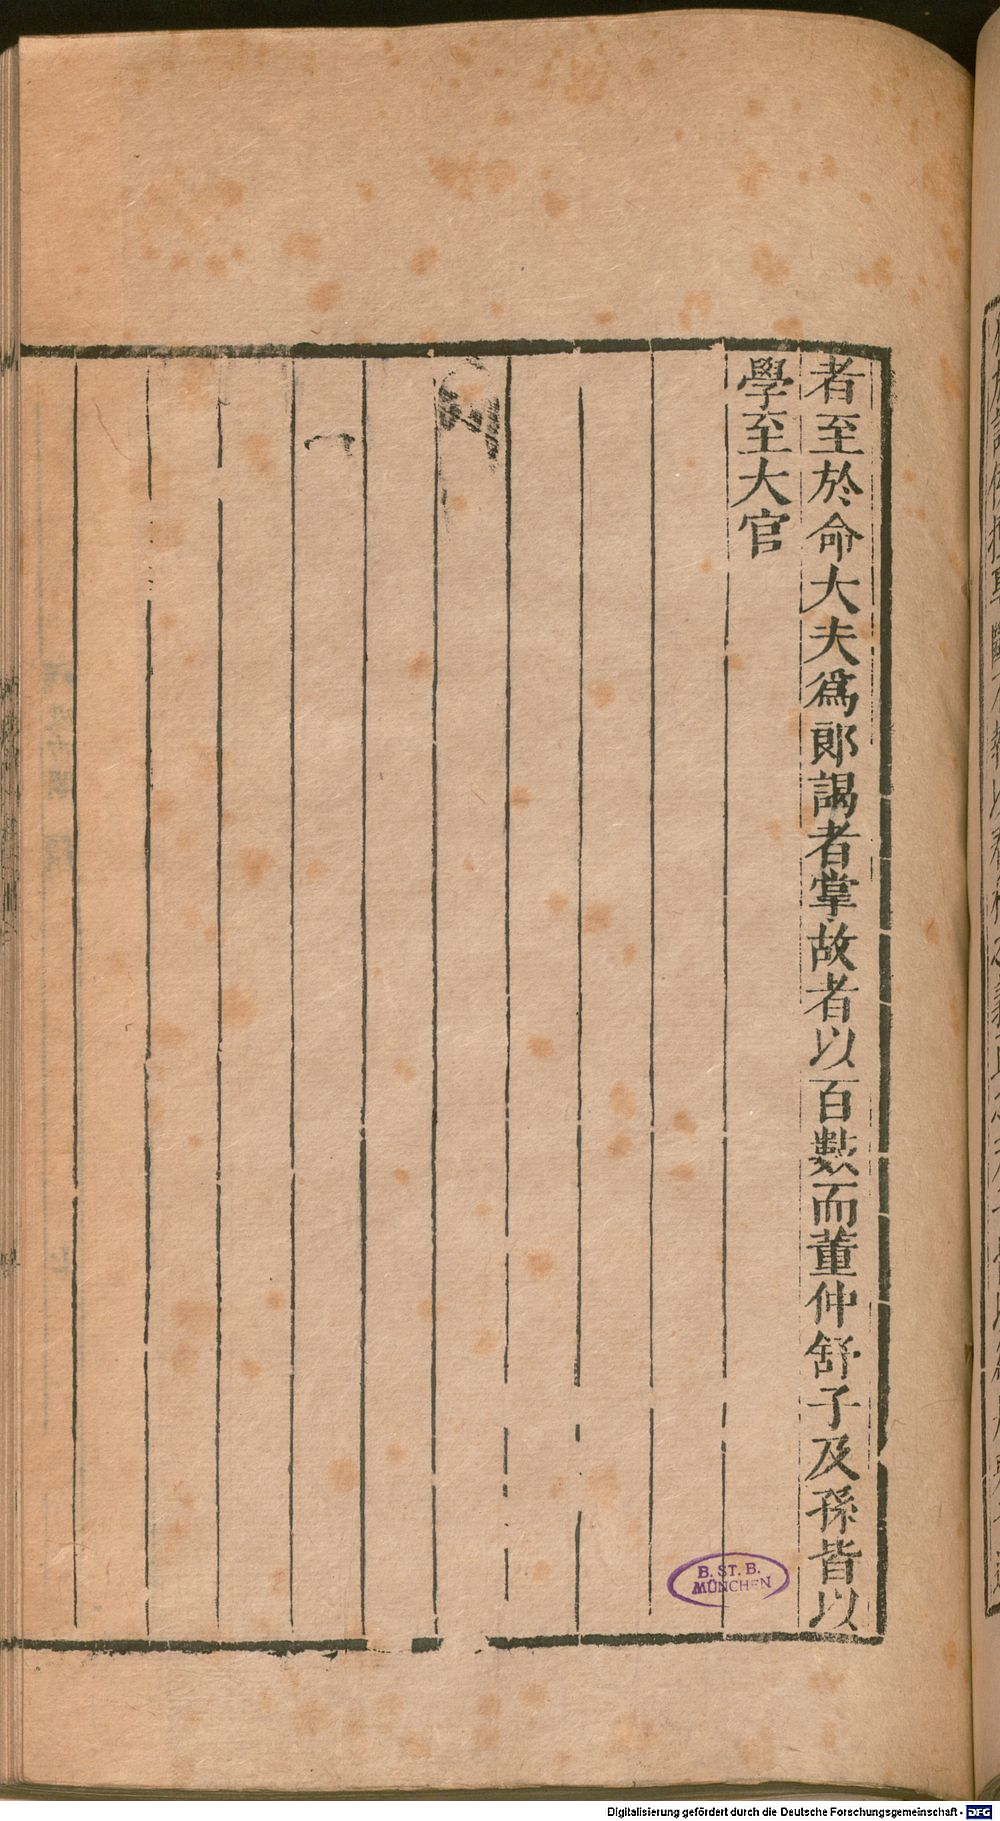 者至於命大夫爲郎謁者掌故者以百數而董仲舒子及孫皆以
學至大官
B. ST. B.
MÜNCHEN
Digitalisierung gefördert durch die Deutsche Forschungsgemeinschaft - DFG